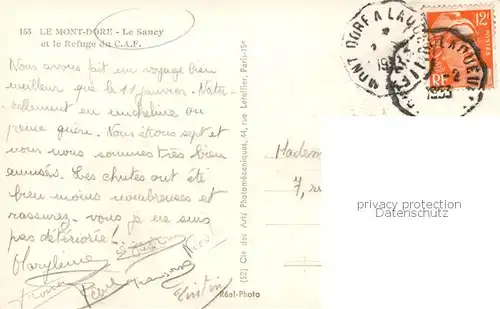 155 LE MONT-DORE - Le Sancy
et le Refuge du C.A.F.
Nous avons fait un voyage bien
meilleur que le 11 janvier. Natu-
rellement en micheline ou
pense guère. Nous étions sept et
nous nous sommes très bien
amusés. Les chutes ont été
bien moins nombreuses et
rassurez-vous je ne suis
pas détériorée!
Marylène
Tintin
(52) Cie des Arts Photomécaniques, 44, rue Letellier, Paris-15e
Réal-Photo
Madem
7, ru
MONT DORE A LAQUEUILLE
1953
12F
POSTES
RF
LAQUEUI
1953
privatgeschützt
Datenschutz